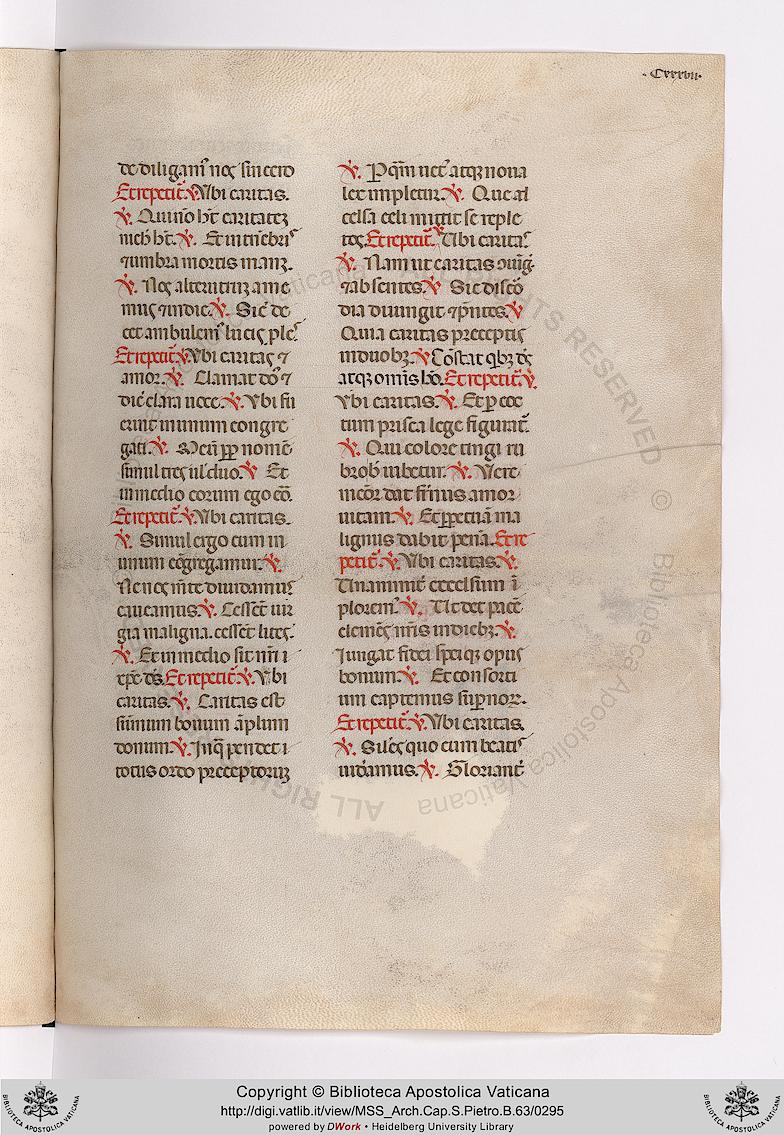 .Cxxxvii.
de diligam᷒ nos sincero
Et repetit᷒ ℣. Ubi caritas.
℣. Qui nō hꝫ caritateꝫ
nich̄ hꝫ. ℣. Et in tenebris
⁊ umbra mortis manꝫ.
℣. Nos alterutruꝫ ame
mus ⁊ in die. ℣. Sic̄ de
cet ambulem᷒ lucis ple.
Et repetit᷒ ℣. Ubi caritas ⁊
amor. ℣. Clamat dō ⁊
dic̄ clara voce. ℣. Ubi fu
erint in unum congre
gati. ℣. Meū ꝓp nomē
simul tres ul̄ duo. ℣ Et
in medio eorum ego eō.
Et repetit᷒. ℣. Ubi caritas.
℣. Simul ergo cum in
unum cōgregamur. ℣.
Ne nos mēte dividamur
caveamus. ℣. Cessēt iur
gia maligna. cessēt lites.
℣. Et in medio sit nr̄i
xp̄c dꝰ. Et repetit᷒. ℣. Ubi
caritas. ℣. Caritas est
sūmum bonum āplum
donum. ℣. In q̄ pendet
totus ordo preceptoruꝫ
℣. P qm̄ vet᷒ atqꝫ nova
lex impletur. ℣. Que ad
celsa celi mittit se reple
tos. Et repetit᷒ ℣ Ubi caritas
℣. Nam ut caritas ↄiūg.
⁊ absentes. ℣ Sic discō
dia diiungit ⁊ p̄ntes. ℣
Quia caritas preceptis
in duobꝫ. ℣ Cōstat qbꝫ
atqꝫ omis Et repetit᷒. ℣.
Ubi caritas. ℣. Et
tum prisca lege figurat᷒.
℣. Qui colore tingi ru
brob iubetur. ℣. Vere
incor dat sūmus amor
vitam. ℣. Et ꝑpetuā ma
lignus dabit penā. Et re
petit᷒. ℣. Ubi caritas. ℣.
Unanimit᷒ excelsum ī
plorem᷒. ℣. Ut det pacē
clemēs nr̄is in diebꝫ. ℣.
Jungat fidei speiqꝫ opus
bonum. ℣. Et consorti
um captemus supnoꝝ.
Et repetit᷒. ℣. Ubi caritas.
℣. Sil̄ qs quo cum beatis
videamus. ℣. Gloriant᷒
© Biblioteca Apostolica Vaticana ALL RIGHTS RESERVED
Copyright © Biblioteca Apostolica Vaticana
http://digi.vatlib.it/view/MSS_Arch.Cap.S.Pietro.B.63/0295
powered by DWork • Heidelberg University Library
BIBLIOTECA APOSTOLICA VATICANA
BIBLIOTECA APOSTOLICA VATICANA